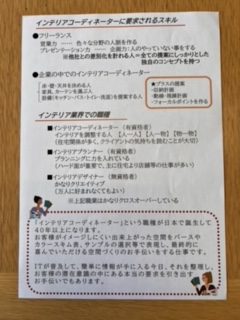 インテリアコーディネーターに要求されるスキル
●フリーランス
営業力 …… 色々な分野の人脈を作る
プレゼンテーション力 …… 企画力 人のやっていない事をする
※他社との差別化を計れる=全ての提案にしっかりとした
独自のコンセプトを持つ
●企業の中でのインテリアコーディネーター
床・壁・天井を決める人
家具、カーテンを選ぶ人
設備(キッチン・バス・トイレ・洗面)を提案する人
★プラスの提案
・収納計画
・動線・照明計画
・フォーカルポイントを作る
インテリア業界での職種
■インテリアコーディネーター(有資格者)
インテリアを調整する人 【人ー人】【人ー物】【物ー物】
(住宅関係が多く、クライアントの気持ちを読むことが大切)
■インテリアプランナー(有資格者)
プランニングに力を入れている
(ハード面が重要で、主に住宅より店舗等の仕事が多い)
■インテリアデザイナー(無資格者)
かなりクリエイティブ
(万人に好まれなくてもよい)
※上記職業はかなりクロスオーバーしている
「インテリアコーディネーター」という職種が日本で誕生して
40年以上になります。
お客様がイメージしにくい出来上がった空間をパースや
カラースキム表、サンプルの選択等で表現し、最終的に
喜んでいただける空間づくりのお手伝いをする仕事です。
ITが普及して、簡単に情報が手に入る今日、それを整理し、
お客様の潜在意識の中にある本当の要求を引き出す
お手伝いでもあります。